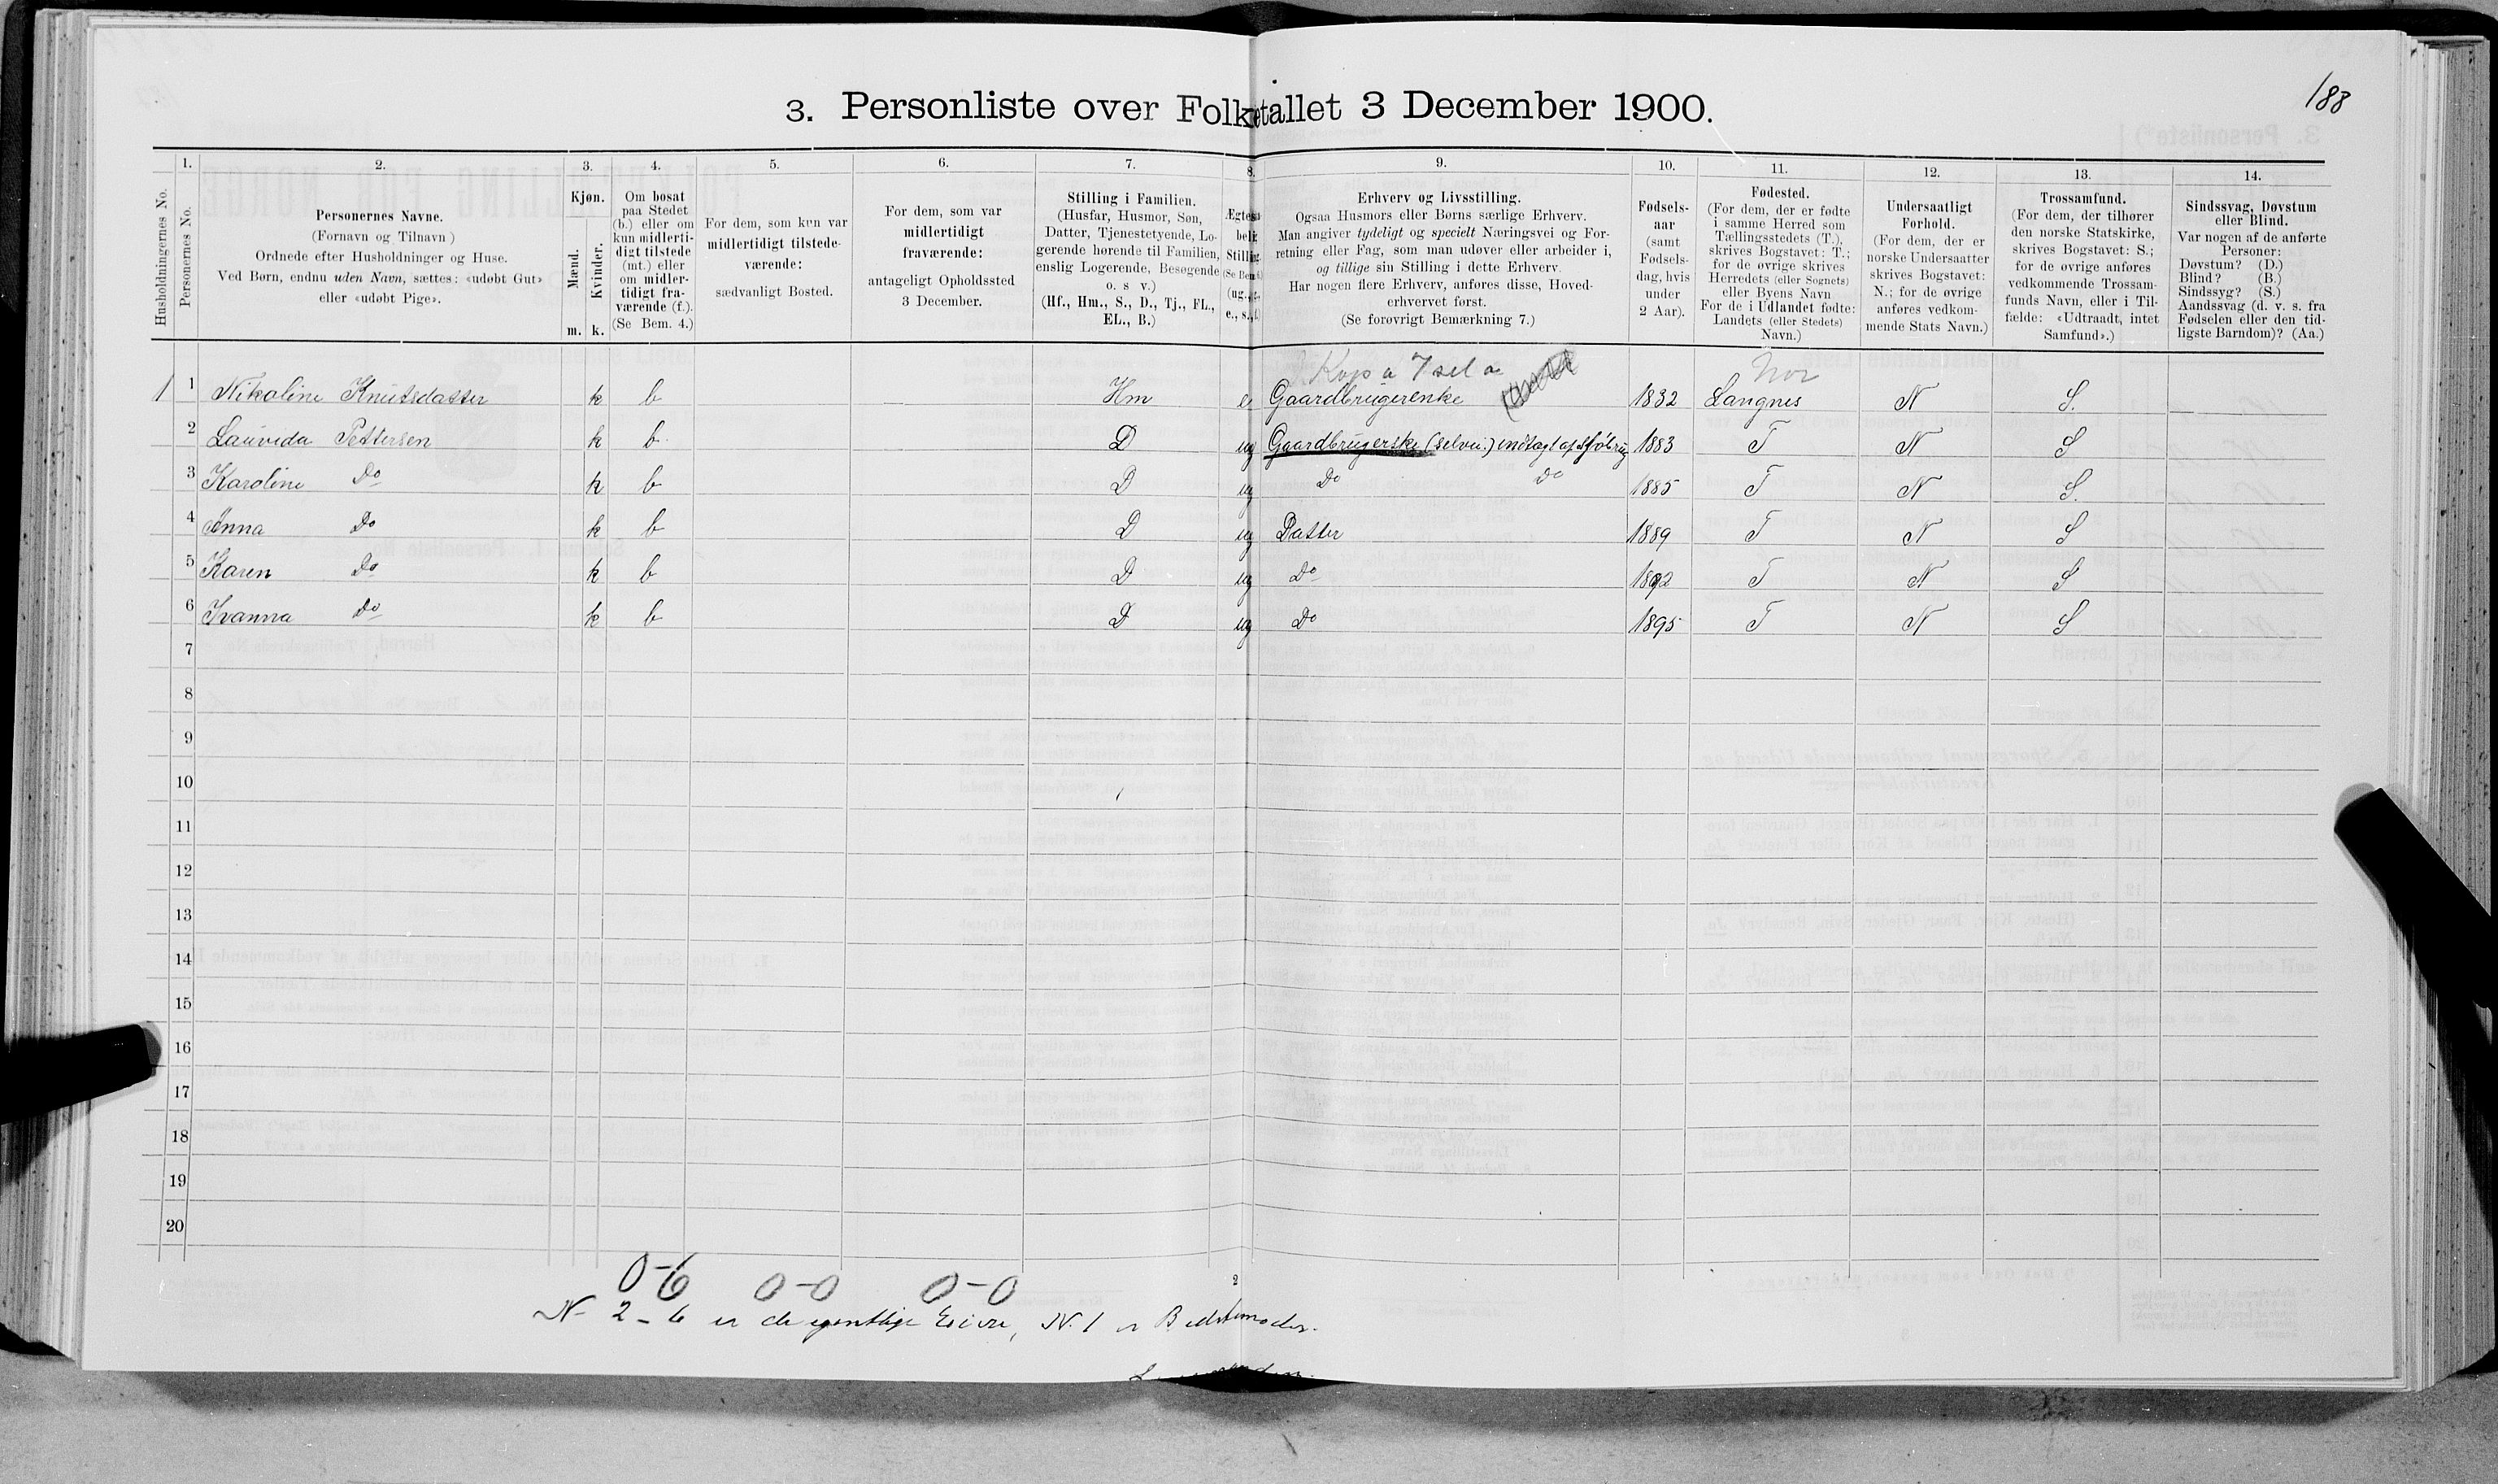 188
3. Personliste over Folketallet 3 December 1900.
Husholdningernes No.
1.
Personernes No.
2.
Personernes Navne.
(Fornavn og Tilnavn )
Ordnede efter Husholdninger og Huse.
Ved Børn, endnu uden Navn, sættes: «udøbt Gut»
eller «udøbt Pige».
3.
Kjøn.
Mænd.
Kvinder.
m. k.
4.
Om bosat
paa Stedet
(b.) eller om
kun midlerti-
digt tilstede
(mt.) eller
om midler-
tidigt fra-
værende (f.).
(Se Bem. 4.)
5.
For dem, som kun var
midlertidigt tilstede-
værende:
sædvanligt Bosted.
6.
For dem, som var
midlertidigt
fraværende:
antageligt Opholdssted
3 December.
7.
Stilling i Familien.
(Husfar, Husmor, Søn,
Datter, Tjenestetyende, Lo-
gerende hørende til Familien,
enslig Logerende, Besøgende
o. s v.)
(Hf., Hm., S., D., Tj., FL.,
EL., B.)
8.
9.
Erhverv og Livsstilling.
Ogsaa Husmors eller Børns særlige Erhverv.
Man angiver tydeligt og specielt Næringsvei og For-
retning eller Fag, som man udøver eller arbeider i,
og tillige sin Stilling i dette Erhverv.
Har nogen flere Erhverv, anføres disse, Hoved-
erhvervet først.
(Se forøvrigt Bemærkning 7.)
10.
Fødsels-
aar
(samt
Fødsels-
dag, hvis
under
2 Aar).
11.
Fødested.
(For dem, der er fødte
i samme Herred som
Tællingsstedets (T.),
skrives Bogstavet: T.;
for de øvrige skrives
Herredets (eller Sognets)
eller Byens Navn
For de i Udlandet fødte:
Landets (eller Stedets)
Navn.)
12.
Undersaatligt
Forhold.
(For dem, der er
norske Undersaatter
skrives Bogstavet:
N.; for de øvrige
anføres vedkom-
mende Stats Navn.)
13.
Trossamfund.
(For dem, der tilhører
den norske Statskirke,
skrives Bogstavet: S.;
for de øvrige anføres
vedkommende Trossam-
funds Navn, eller i Til-
fælde: «Udtraadt, intet
Samfund».)
14.
Sindssvag, Døvstum
eller Blind.
Var nogen af de anførte
Personer:
Døvstum? (D.)
Blind? (B.)
Sindssyg? (S.)
Aandssvag (d. v. s. fra
Fødselen eller den tid-
ligste Barndom)? (Aa.)
1 1 Nikoline Knutsdatter k b Hm e Gaardbrugerenke 1832 Langnes N S.
2 Lauvida Pettersen k b D ug Gaardbrugerske (selvei.) 1883 T N S
3 Karoline Do k b D ug Do Do 1885 T N S.
4 Anna Do k b D ug Datter 1889 T N S
5 Karen Do k b D ug Do 1892 T N S
6 Ivanna Do k b D ug Do 1895 T N S
7
8
9
10
11
12
13
14
15
16
17
18
19
20
0-6 0-0 0-0
2
N- 2-6 er de egentlige Eiere, N. 1 er Bedstemoder.